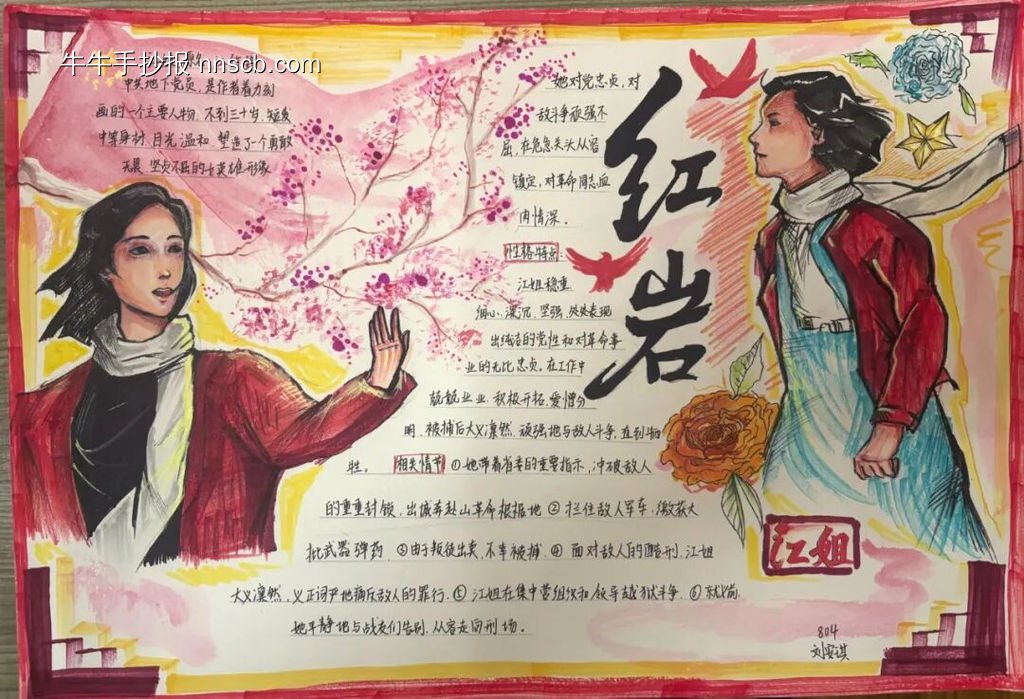 牛牛手抄报 nnscb.com
中共地下党员,是作者着力刻
画的一个主要人物,不到三十岁,短发
中等身材,目光温和,塑造了一个勇敢
无畏、坚贞不屈的女英雄形象
她对党忠贞,对
敌斗争顽强不
屈,在危急关头从容
镇定,对革命同志血
肉情深。
性格特点:
江姐稳重
细心、深沉、坚强,处处表现
出纯洁的党性和对革命事
业的无比忠贞。在工作中
兢兢业业、积极开拓,爱憎分
明,被捕后大义凛然,顽强地与敌人斗争,直到牺
牲。 相关情节 ①她带着省委的重要指示,冲破敌人
的重重封锁,出城奔赴山革命根据地 ② 拦住敌人军车,缴获大
批武器弹药 ③由于叛徒出卖,不幸被捕 ④ 面对敌人的酷刑,江姐
大义凛然,义正词严地痛斥敌人的罪行。⑤ 江姐在集中营组织和领导越狱斗争 ⑥ 就义前,
她平静地与战友们告别,从容走向刑场。
红岩
江姐
804